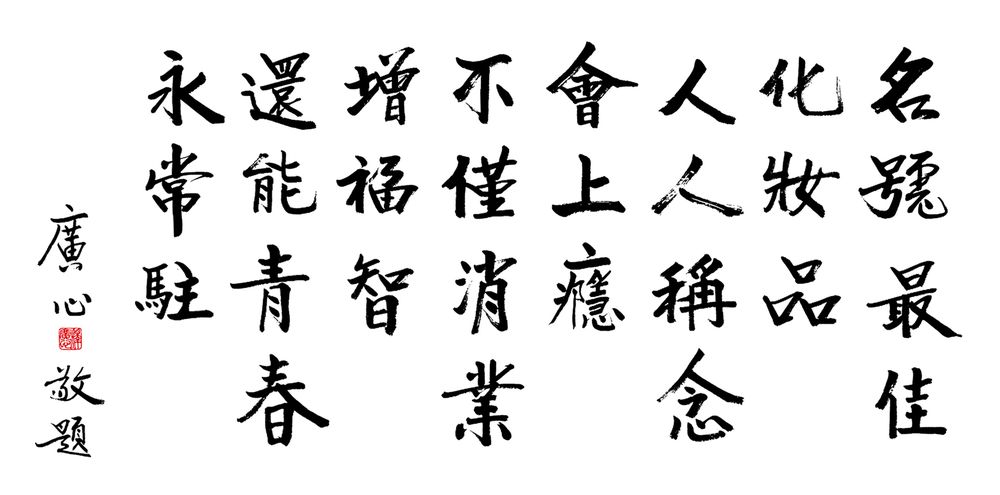 名號最佳
化妝品
人人稱念
會上癮
不僅消業
增福智
還能青春
永常駐
廣心
敬題